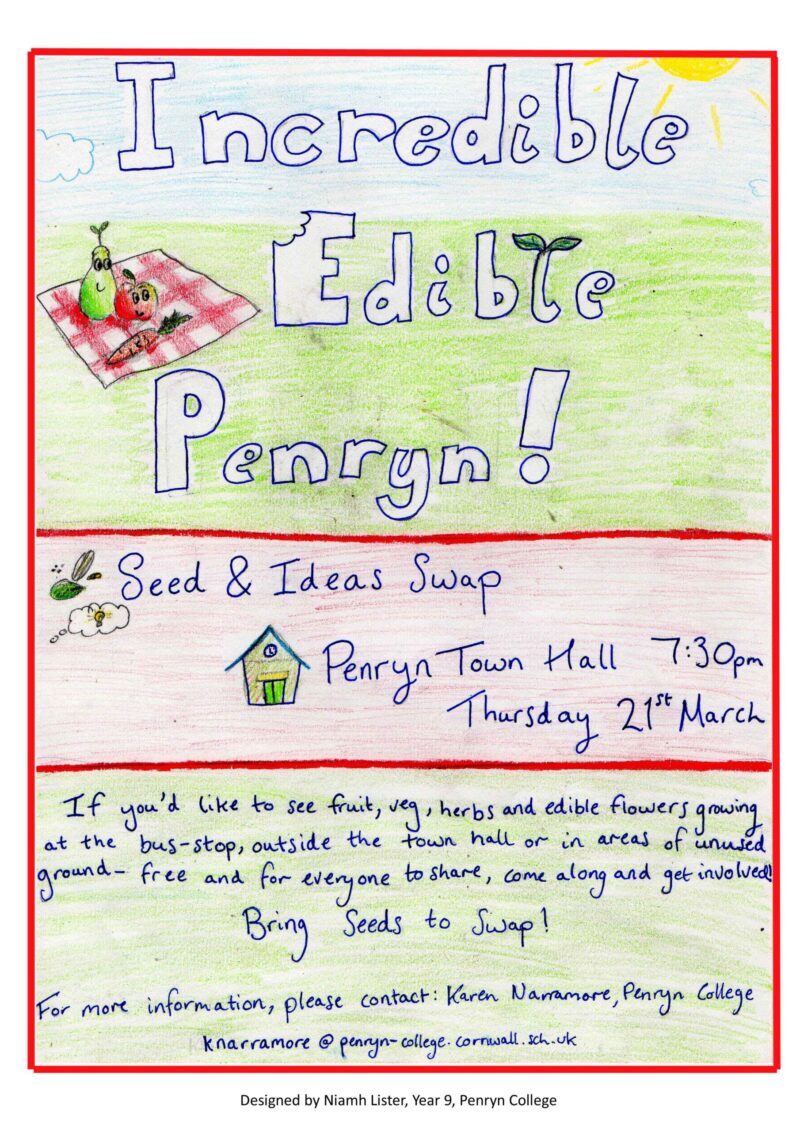 Incredible
Edible
Penryn!
Seed & Ideas Swap
Penryn Town Hall 7:30pm
Thursday 21st March
If you'd like to see fruit, veg, herbs and edible flowers growing
at the bus-stop, outside the town hall or in areas of unused
ground- free and for everyone to share, come along and get involved!
Bring Seeds to Swap!
For more information, please contact: Karen Narramore, Penryn College
knarramore @ penryn-college.cornwall.sch.uk
Designed by Niamh Lister, Year 9, Penryn College